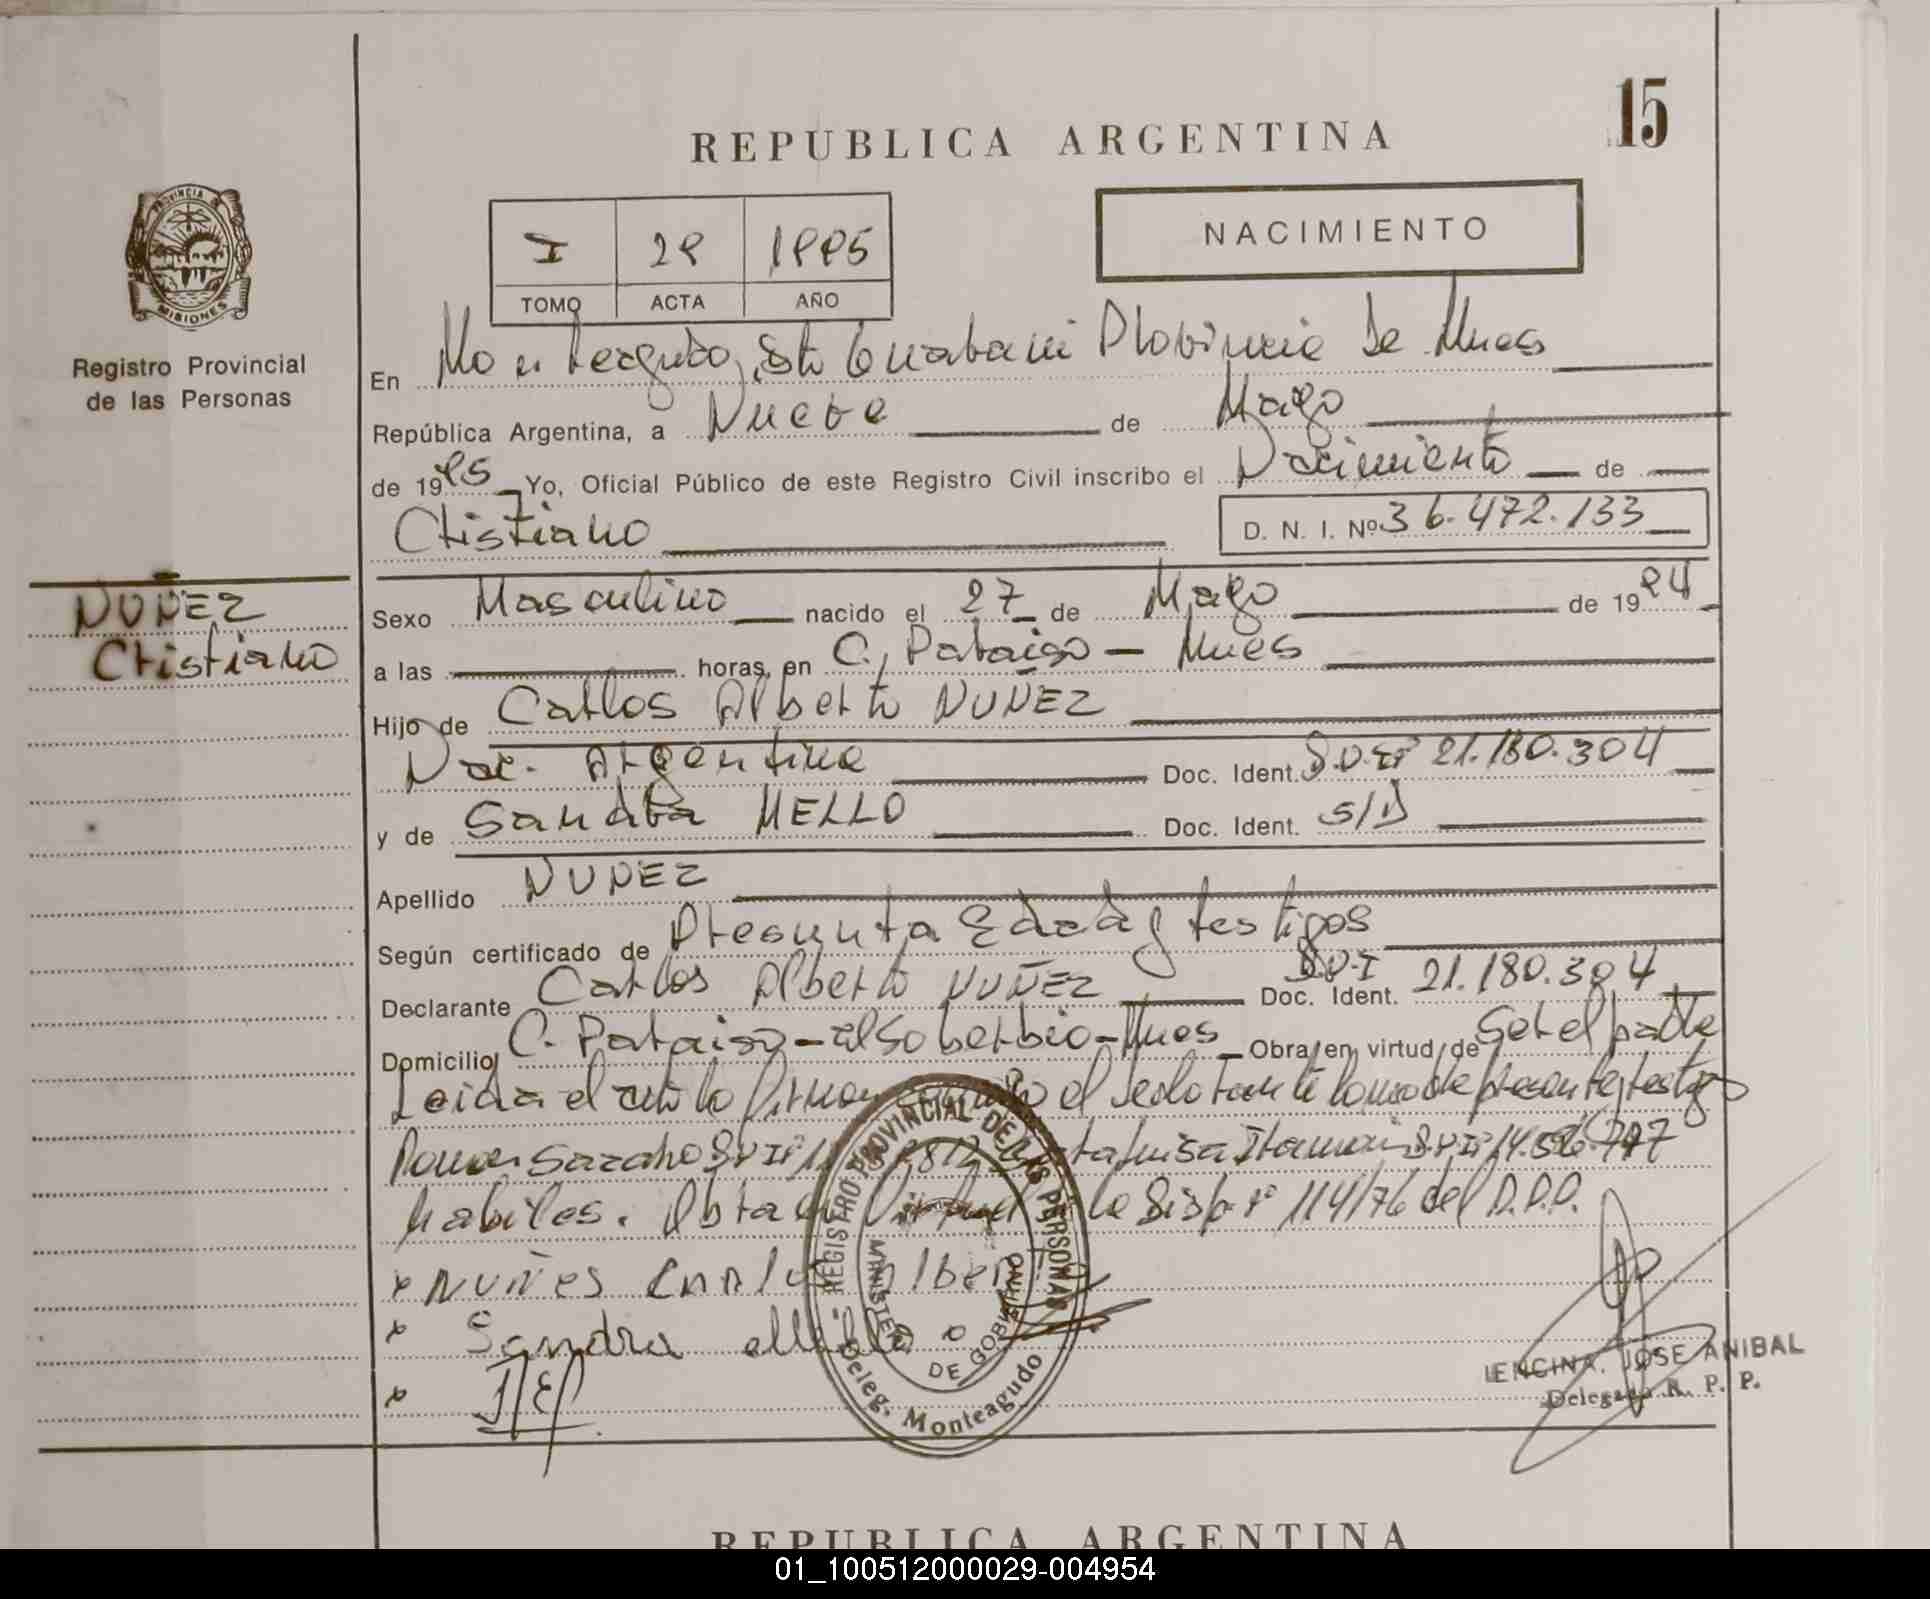 15
REPUBLICA ARGENTINA
PROVINCIA DE
MISIONES
Registro Provincial
de las Personas
I 29 1995
TOMO ACTA AÑO
NACIMIENTO
En Monteagudo, Dto Guarani Provincia de Mnes
República Argentina, a Nueve de Mayo
de 1995 Yo, Oficial Público de este Registro Civil inscribo el Nacimiento de
Cristiano D. N. I. Nº 36.472.133
NUÑEZ
Cristiano
Sexo Masculino nacido el 27 de Mayo de 1994
a las horas, en C. Paraiso - Mnes
Hijo de Carlos Alberto NUÑEZ
Nac. Argentina Doc. Ident. D.N.I Nº 21.180.304
y de Sandra MELLO Doc. Ident. S/D
Apellido NUÑEZ
Según certificado de Presunta Edad y testigos
Declarante Carlos Alberto NUÑEZ Doc. Ident. D.N.I 21.180.304
Domicilio C. Paraiso - El Soberbio - Mnes Obra en virtud de Ser el padre
Leida el acta la firman el declarante la madre presente y testigos
Ramon
habiles. Obra en Virtud de la Disp. Nº 114/76 del R.P.P.
x NUÑES CARLOS Alberto
x Sandra Mello
x
REGISTRO PROVINCIAL DE LAS PERSONAS
MINISTERIO DE GOBIERNO
Deleg. Monteagudo
ENCINA, JOSE ANIBAL
Delegado R. P. P.
REPUBLICA ARGENTINA
01_100512000029-004954